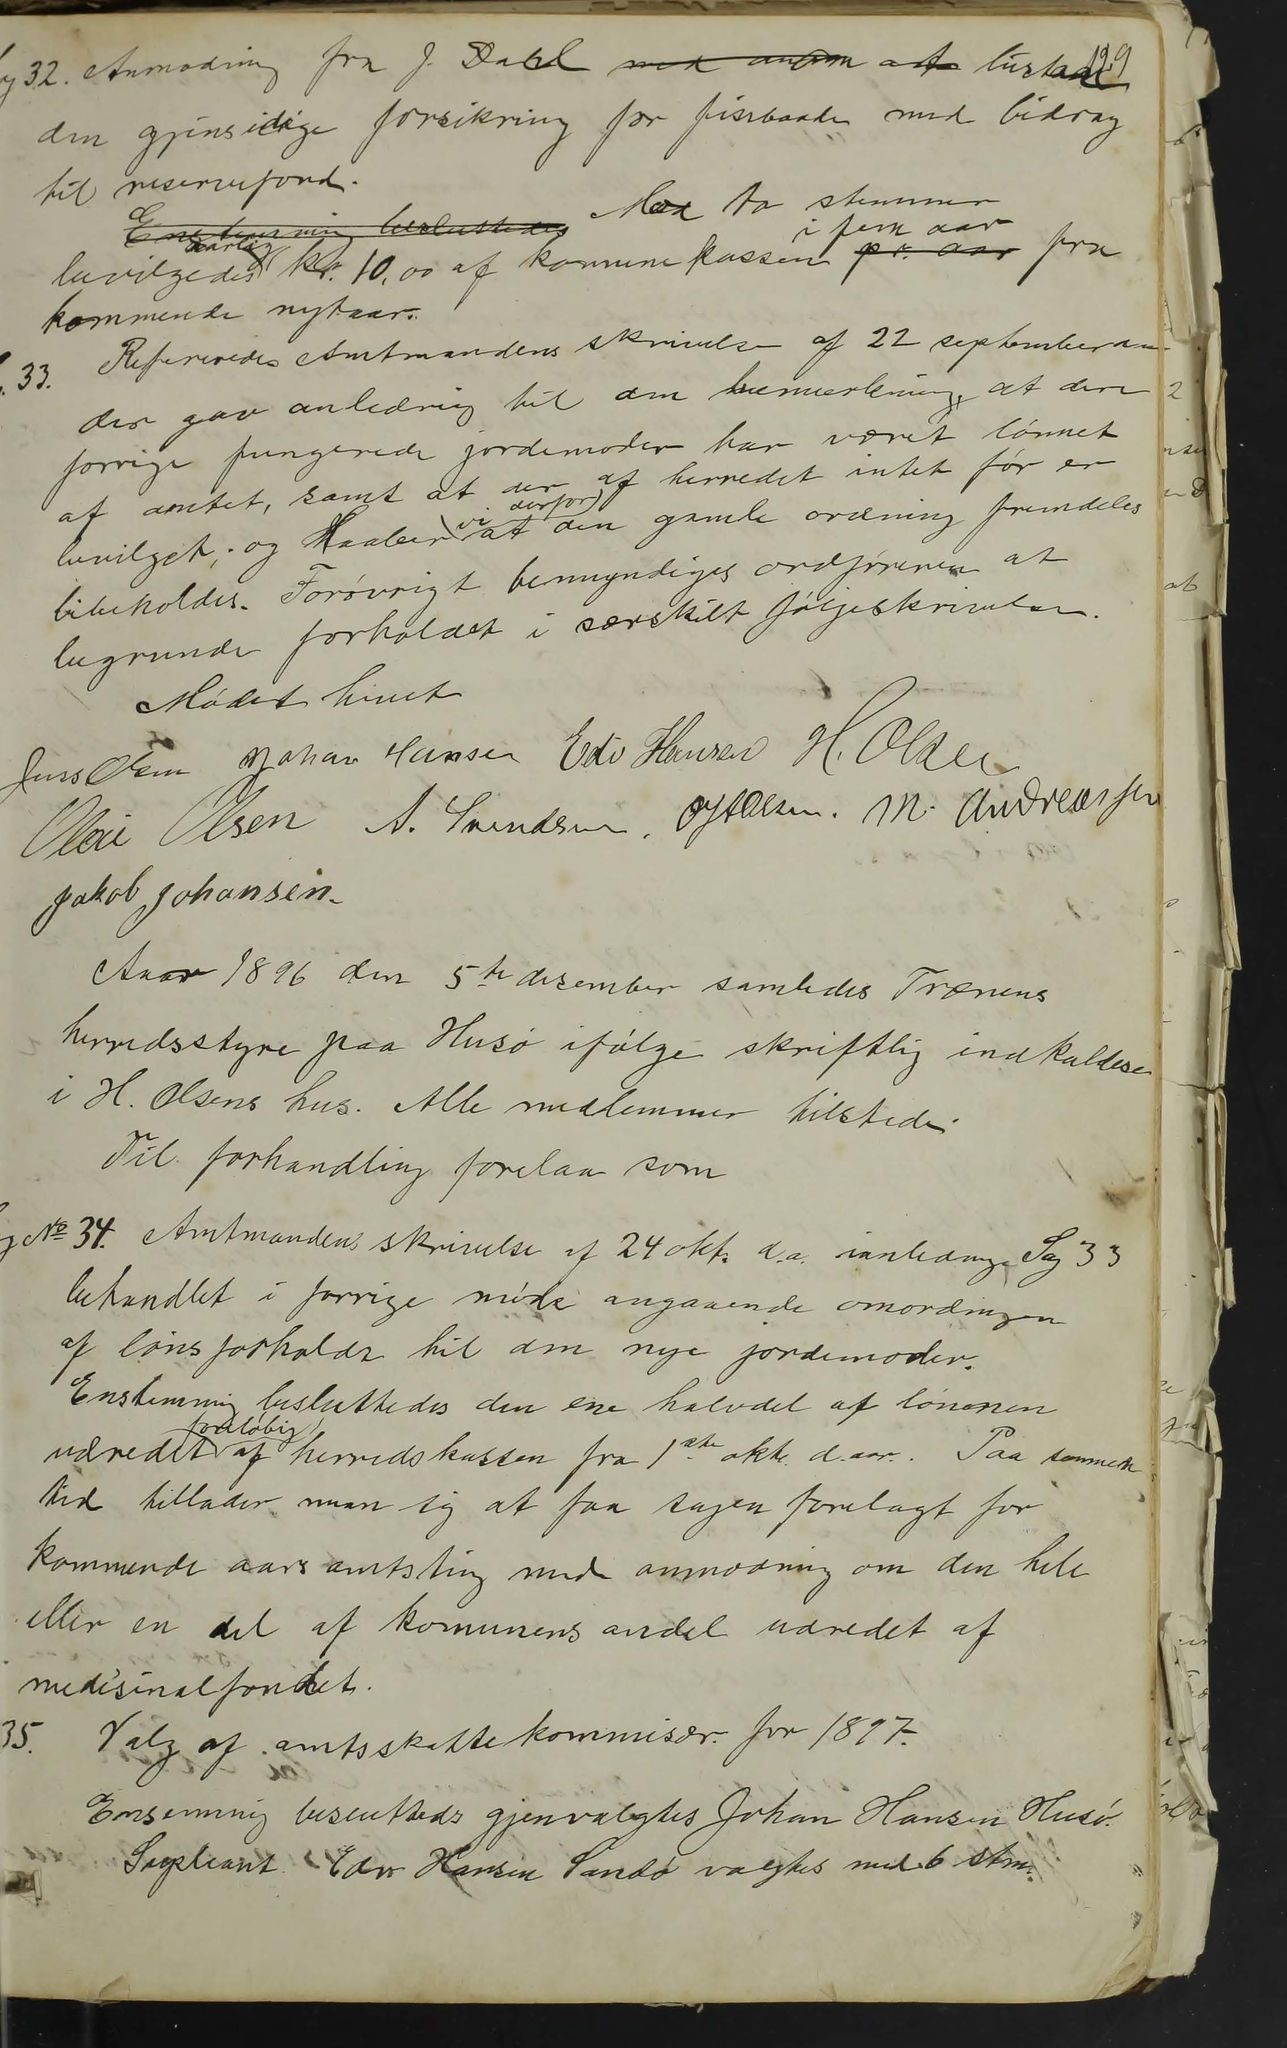 129
32. Anmodning fra J. Dahl med at
den gjensidige forsikring for fiskebaade med bidrag
til reservefond.
Enstemmig besluttedes Med to stemmer
aarlig i fem aar
bevilgedes kr. 10,00 af kommunekassen pr. aar fra
kommende nytaar.
33. Refereredes Amtmandens skrivelse af 22 september
der gav anledning til den bemerkning, at den
forrige fungerede jordemoder har været lønnet
af amtet, samt at der af herredet intet før er
vi derfor
bevilget, og Haaber at den gamle ordning fremdeles
bibeholdes. Forøvrigt bemyndiges ordføreren at
begrunde forholdet i særskilt følgeskrivelse.
Mødet hævet
Jens Olsen Johan Hansen Edv Hansen H. Olsen
Olai Olsen A. Svendsen. Olsen. M. Andreassen
Jakob Johansen.
Aaar 1896 den 5te desember samledes Trænens
herredsstyre paa Husø ifølge skriftlig indkaldese
i H. Olsens hus. Alle medlemmer tilstede.
Til forhandling forelaa som
No 34. Amtmandens skrivelse af 24 okt. d.a. Sag 33
behandlet i forrige møde angaaende omordningen
af lønsforholdr til den nye jordemoder.
Enstemmig besluttedes den ene halvdel af lønnen
foreløbig
udredet af herredskassen fra 1ste okt. d. aar. Paa samme
tid tillader man sig at faa sagen forelagt for
kommende aars amtsting med anmodning om den hele
eller en del af komunens andel udredet af
medisinalfondet.
35. Valg af amtsskattekommisær for 1897.
Ensemmig besluttedes gjenvalgtes Johan Hansen Husø.
Supleant Edv Hansen Sandø valgtes med 6 stm.